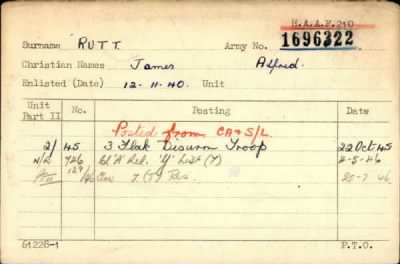 H.A.A.F. 210
Surname RUTT Army No. 1696322
Christian Names James Alfred.
Enlisted (Date) 12-11-40. Unit
Unit Part II No. Posting Date
Posted from CA & S/L
2/ 45 3 Flak Disarm Troop 22 Oct 45
746 Cl 'A' Rel. 'Y' List (T) 2-5-46
127 Z (T) Res. 20-7-46
61228-1 P.T.O.